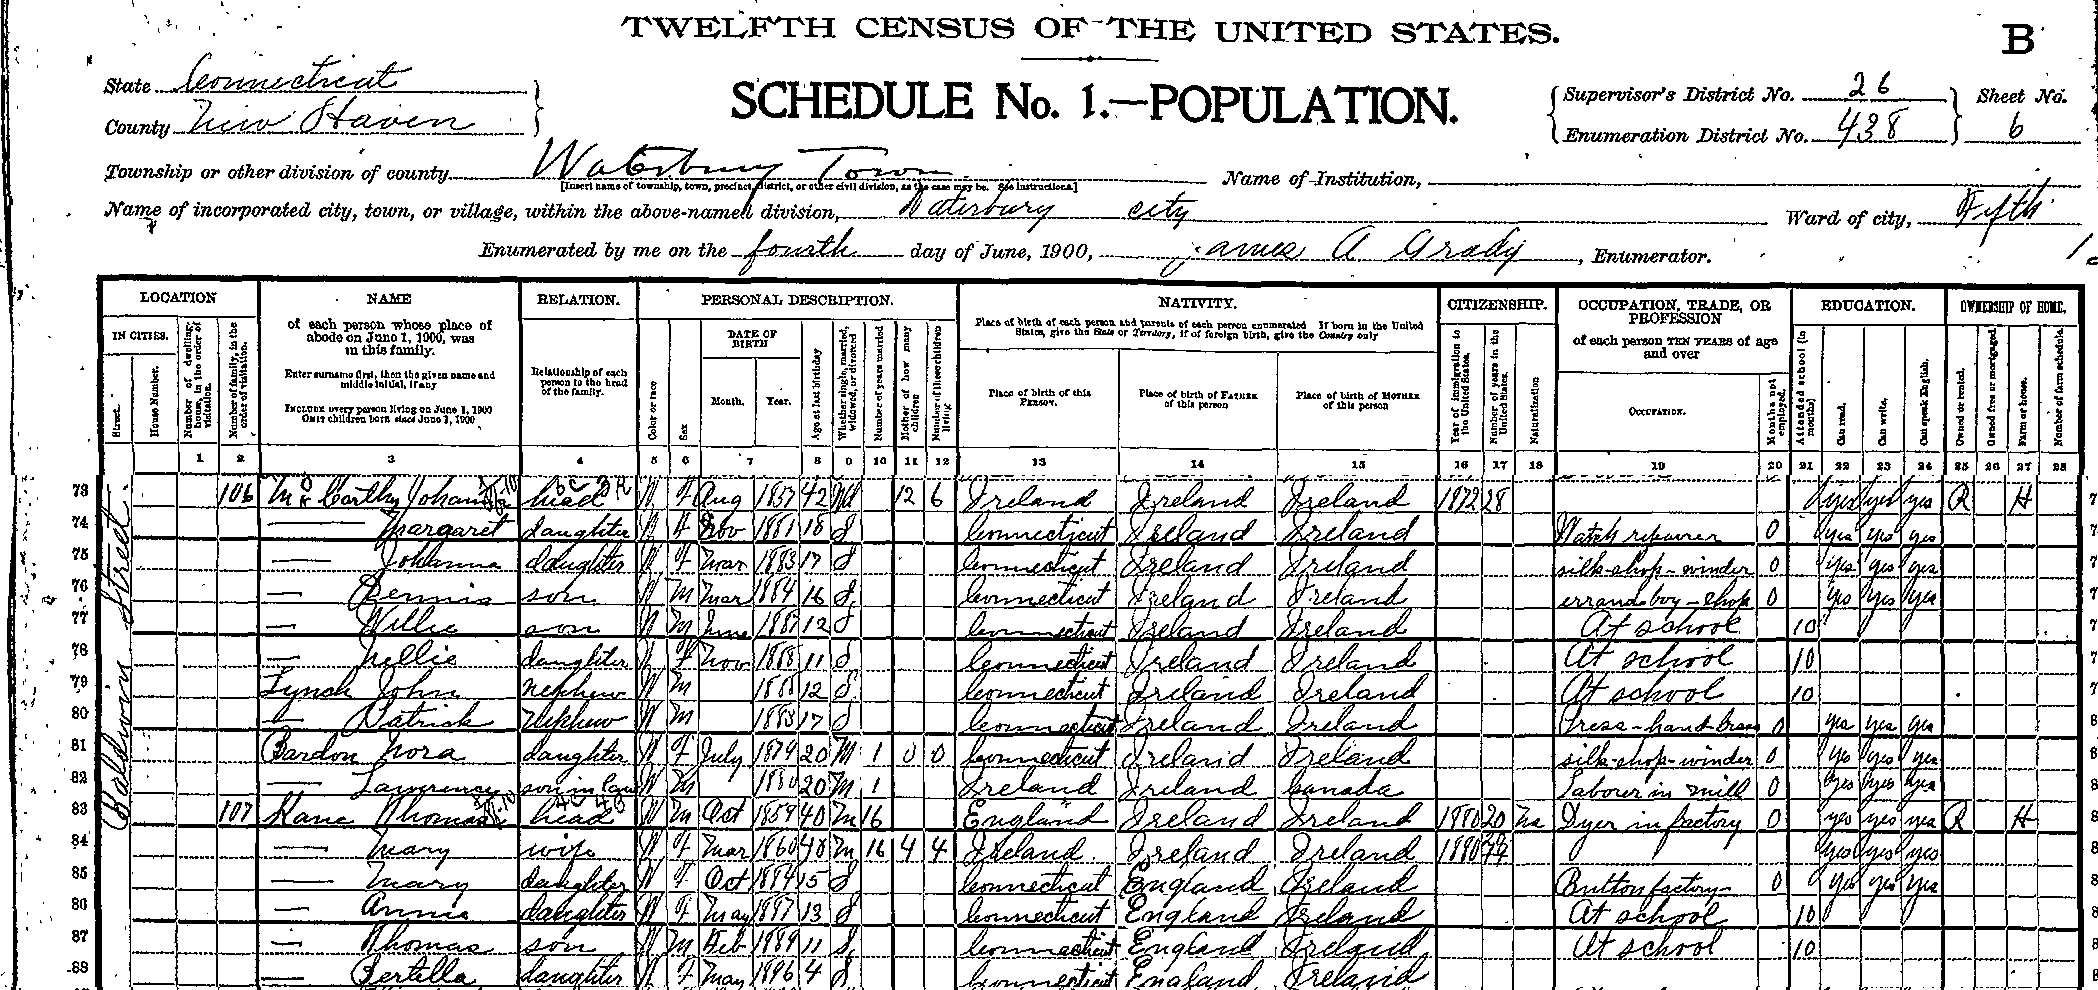 TWELFTH CENSUS OF THE UNITED STATES.
B
State Connecticut
County New Haven
SCHEDULE No. 1.—POPULATION.
Supervisor's District No. 26
Enumeration District No. 438
Sheet No.
6
Township or other division of county Waterbury Town
[Insert name of township, town, precinct, district, or other civil division, as the case may be. See instructions.]
Name of Institution,
Name of incorporated city, town, or village, within the above-named division, Waterbury city
Ward of city, Fifth
Enumerated by me on the fourth day of June, 1900, James A Grady, Enumerator.
LOCATION NAME RELATION. PERSONAL DESCRIPTION. NATIVITY. CITIZENSHIP. OCCUPATION, TRADE, OR PROFESSION EDUCATION. OWNERSHIP OF HOME.
IN CITIES.
Street.
House Number.
Number of dwelling house, in the order of visitation.
Number of family, in the order of visitation.
of each person whose place of abode on June 1, 1900, was in this family.
Enter surname first, then the given name and middle initial, if any
INCLUDE every person living on June 1, 1900
OMIT children born since June 1, 1900
Relationship of each person to the head of the family.
Color or race
Sex
DATE OF BIRTH
Month. Year.
Age at last birthday
Whether single, married, widowed, or divorced
Number of years married
Mother of how many children
Number of these children living
Place of birth of each person and parents of each person enumerated If born in the United States, give the State or Territory, if of foreign birth, give the Country only
Place of birth of this PERSON.
Place of birth of FATHER of this person
Place of birth of MOTHER of this person
Year of immigration to the United States.
Number of years in the United States.
Naturalization
of each person TEN YEARS of age and over
OCCUPATION.
Months not employed.
Attended school (in months)
Can read.
Can write.
Can speak English.
Owned or rented.
Owned free or mortgaged
Farm or house.
Number of farm schedule.
1 2 3 4 5 6 7 8 9 10 11 12 13 14 15 16 17 18 19 20 21 22 23 24 25 26 27 28
Baldwin Street
73 106 McCarthy Johanna head W F Aug 1857 42 Wd 12 6 Ireland Ireland Ireland 1872 28 yes yes yes R H
74 — Margaret daughter W F Nov 1881 18 S Connecticut Ireland Ireland Watch repairer 0 yes yes yes
75 — Johanna daughter W F Mar 1883 17 S Connecticut Ireland Ireland silk-shop-winder 0 yes yes yes
76 — Dennis son W M Mar 1884 16 S Connecticut Ireland Ireland errand boy-shop 0 yes yes yes
77 — Willie son W M June 1887 12 S Connecticut Ireland Ireland At school 10
78 — Nellie daughter W F Nov 1888 11 S Connecticut Ireland Ireland At school 10
79 Lynch John nephew W M 1888 12 S Connecticut Ireland Ireland At school 10
80 — Patrick nephew W M 1883 17 S Connecticut Ireland Ireland Press-hand-brass 0 yes yes yes
81 Bardon Nora daughter W F July 1879 20 M 1 0 0 Connecticut Ireland Ireland silk-shop-winder 0 yes yes yes
82 — Lawrence son in law W M 1880 20 M 1 Ireland Ireland Canada Labourer in mill 0 yes yes yes
83 107 Kane Thomas head W M Oct 1859 40 M 16 England Ireland Ireland 1880 20 Na Dyer in factory 0 yes yes yes R H
84 — Mary wife W F Mar 1860 40 M 16 4 4 Ireland Ireland Ireland 1880 yes yes yes
85 — Mary daughter W F Oct 1884 15 S Connecticut England Ireland Button factory 0 yes yes yes
86 — Annie daughter W F May 1887 13 S Connecticut England Ireland At school 10
87 — Thomas son W M Feb 1889 11 S Connecticut England Ireland At school 10
88 — Bertella daughter W F May 1896 4 S Connecticut England Ireland